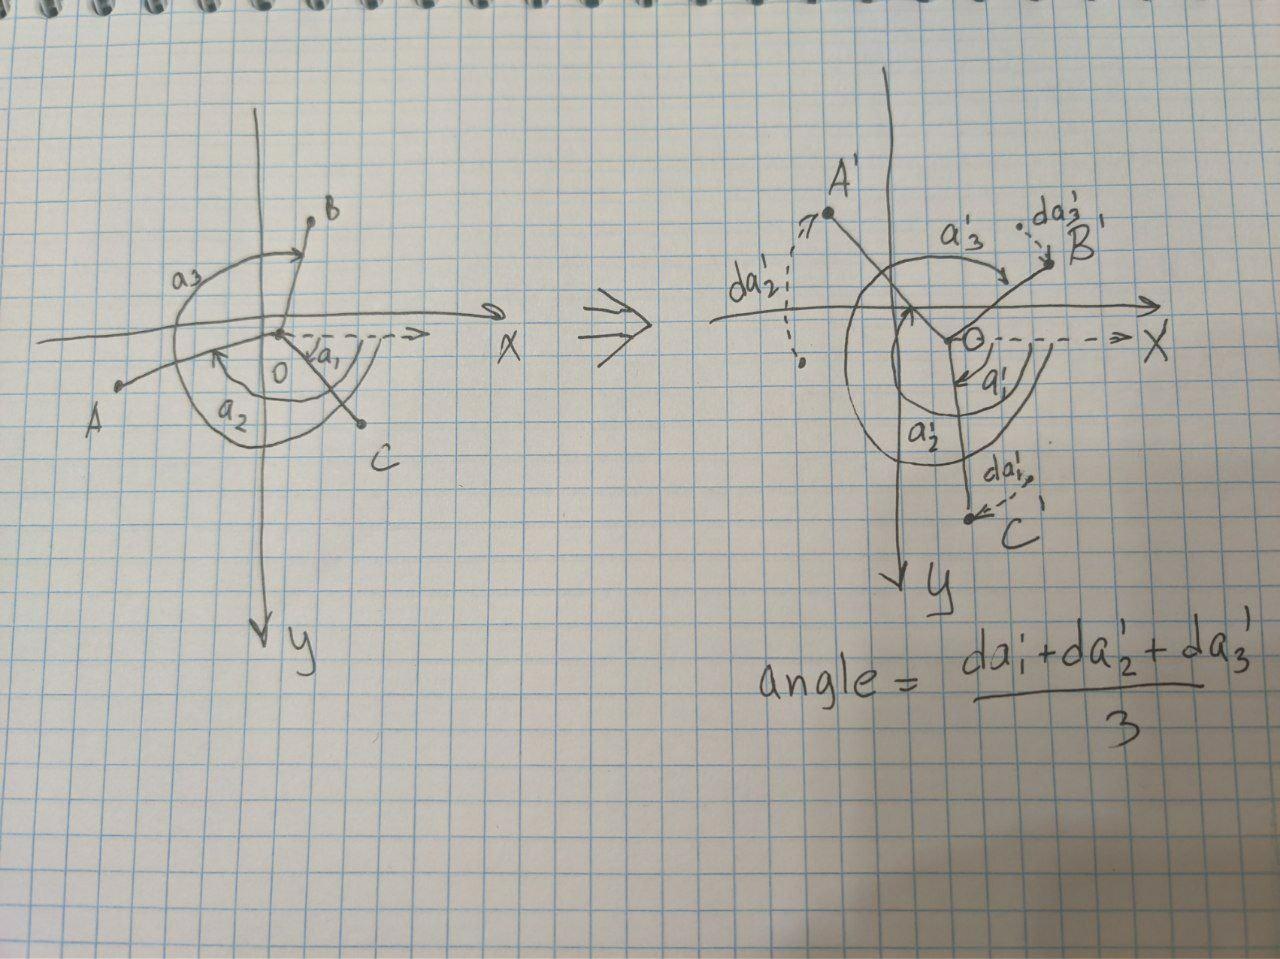 B
a3
X
a1
O
A
a2
C
y
A'
da'3
a'3
B'
da'2
O
X
a'1
a'2
da'1
C'
y
angle = da'1 + da'2 + da'3
3